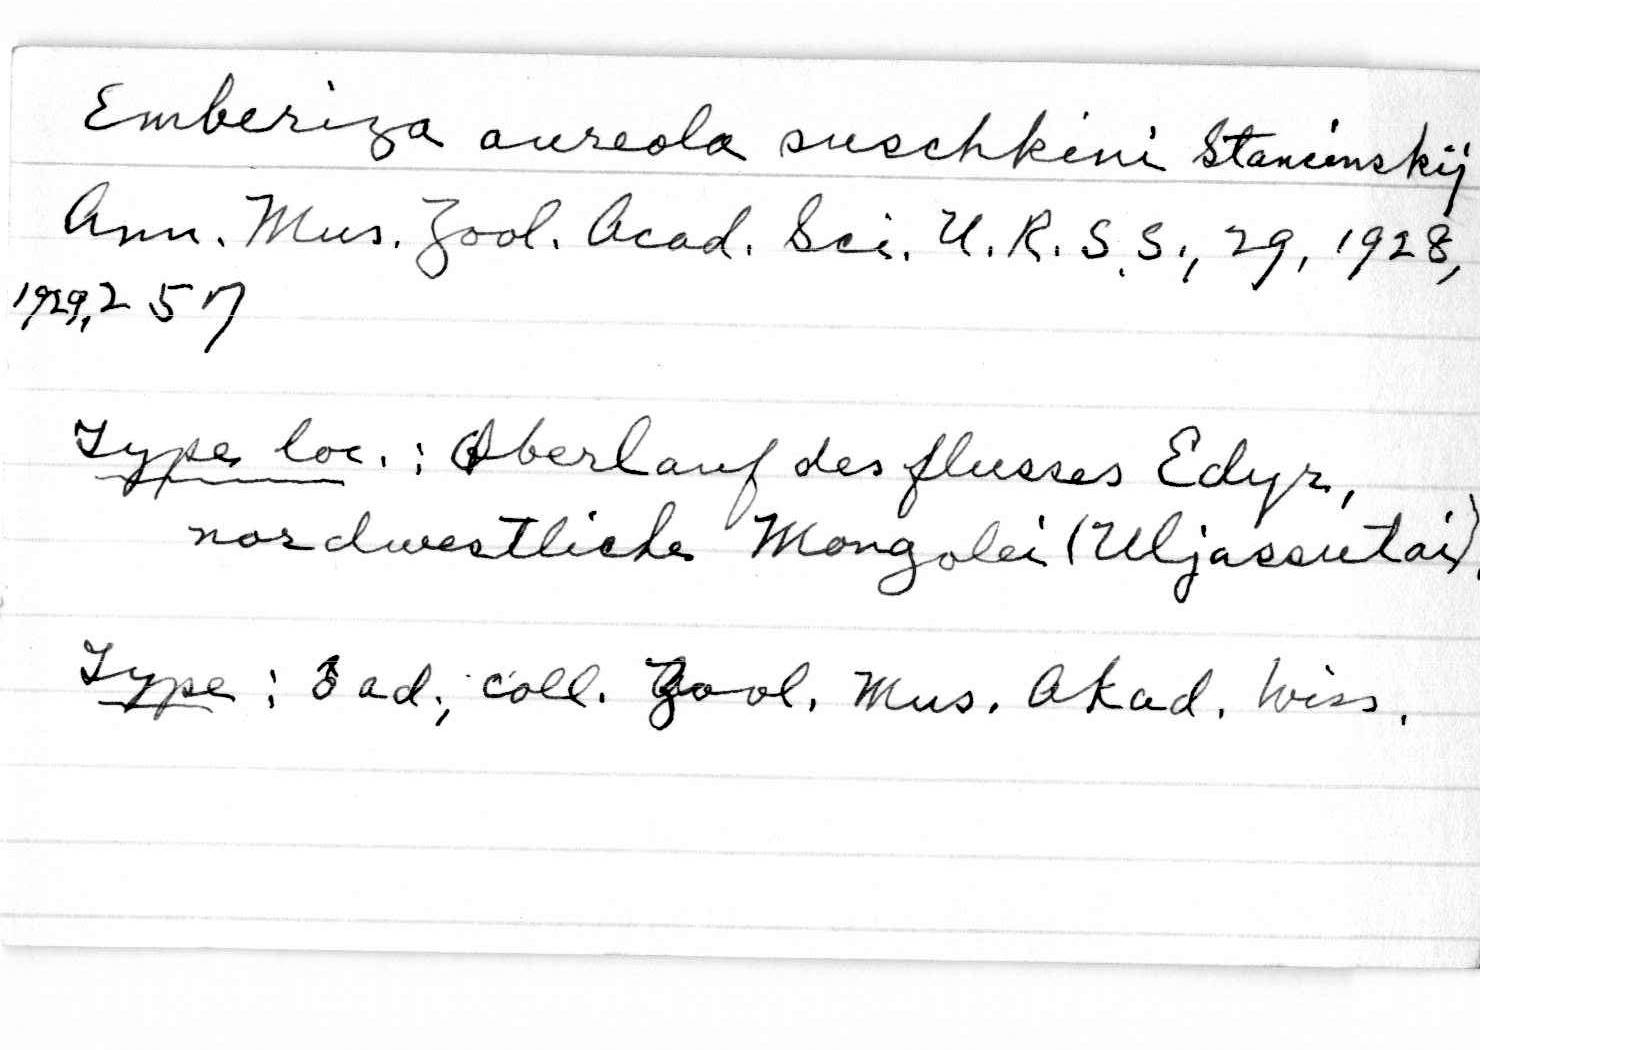 Emberiza aureola suschkini Stancinskij
Ann. Mus. Zool. Acad. Sci. U.R.S.S., 29, 1928,
1929, 257
Type loc.: Oberlauf des flusses Edyr,
nordwestliche Mongolei (Uljassutai).
Type: ad., coll. Zool. Mus. Akad. Wiss.